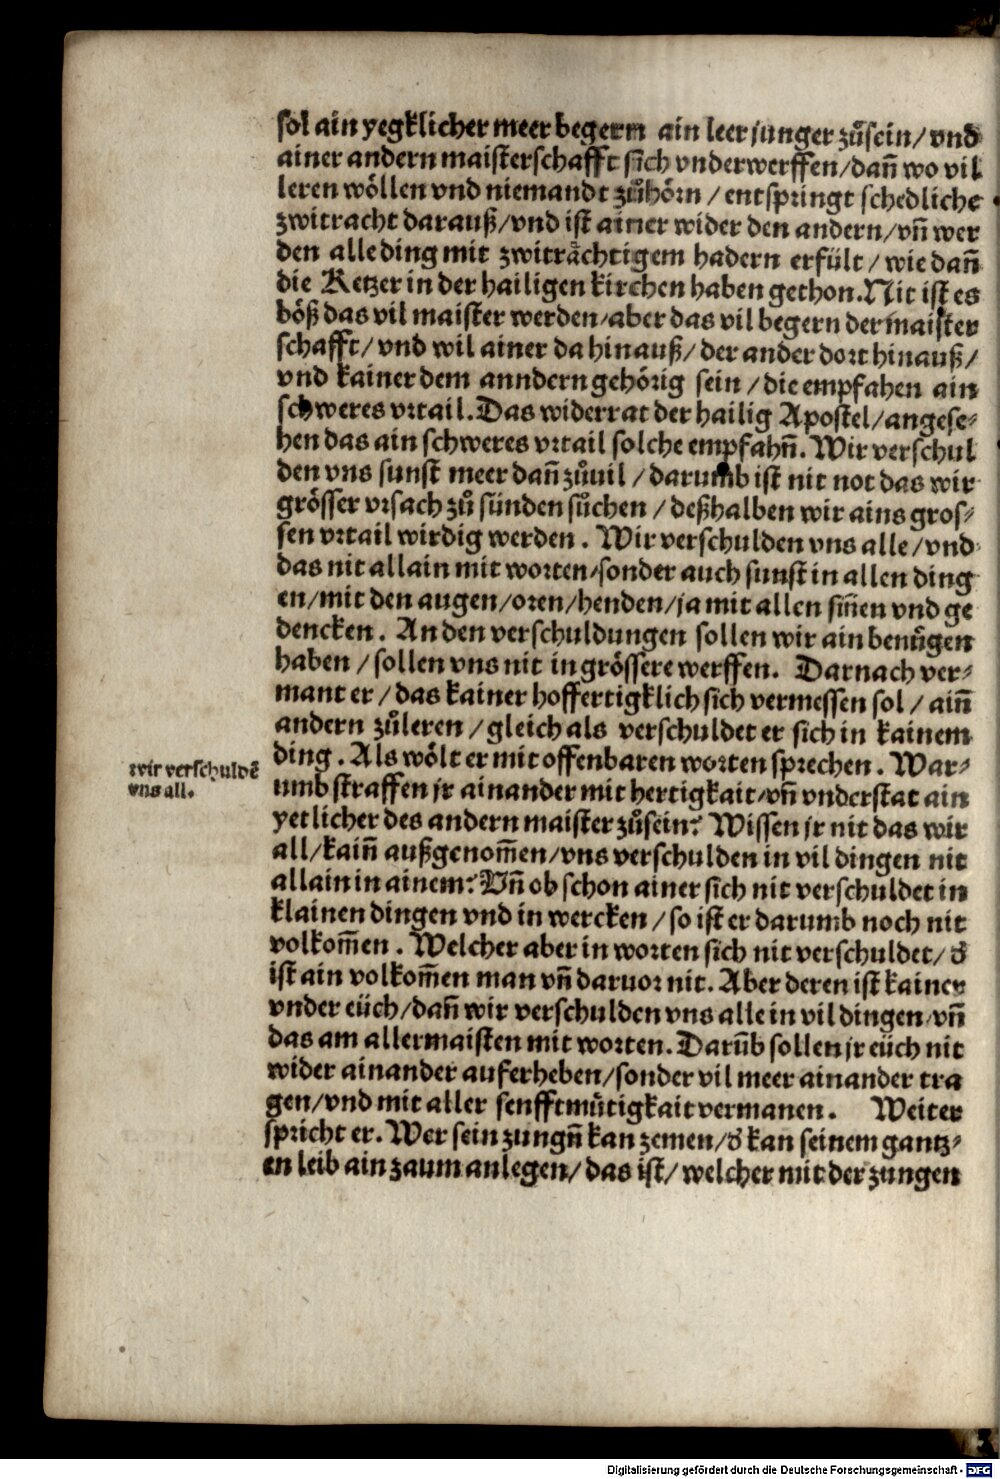 sol ain yegklicher meer begern ain leer junger zůsein/ vnd
ainer andern maisterschafft sich vnderwerffen/dañ wo vil
leren wöllen vnd niemandt zůhörn / entspringt schedliche
zwitracht darauß/vnd ist ainer wider den andern/vñ wer
den alle ding mit zwiträchtigem hadern erfült / wie dañ
die Ketzer in der hailigen kirchen haben gethon. Nit ist es
böß das vil maister werden/aber das vil begern der maister
schafft/ vnd wil ainer da hinauß/ der ander dort hinauß/
vnd kainer dem anndern gehörig sein / die empfahen ain
schweres vrtail. Das widerrat der hailig Apostel/angese⸗
hen das ain schweres vrtail solche empfahñ. Wir verschul
den vns sunst meer dañ zůuil / darumb ist nit not das wir
grösser vrsach zů sünden sůchen / deßhalben wir ains gros⸗
sen vrtail wirdig werden . Wir verschulden vns alle/vnd
das nit allain mit worten/sonder auch sunst in allen ding
en/mit den augen/oren/henden/ja mit allen siñen vnd ge
dencken . An den verschuldungen sollen wir ain benůgen
haben / sollen vns nit in grössere werffen. Darnach ver⸗
mant er / das kainer hoffertigklich sich vermessen sol / aiñ
andern zůleren / gleich als verschuldet er sich in kainem
ding . Als wölt er mit offenbaren worten sprechen . War⸗
wir verschuldē
vns all.
umb straffen jr ainander mit hertigkait/vñ vnderstat ain
yetlicher des andern maister zůsein? Wissen jr nit das wir
all/kaiñ außgenom̄en/vns verschulden in vil dingen nit
allain in ainem? Vñ ob schon ainer sich nit verschuldet in
klainen dingen vnd in wercken / so ist er darumb noch nit
volkom̄en . Welcher aber in worten sich nit verschuldet/ d̓
ist ain volkom̄en man vñ daruor nit. Aber deren ist kainer
vnder eüch/dañ wir verschulden vns alle in vil dingen/vñ
das am allermaisten mit worten. Darūb sollen jr eüch nit
wider ainander auferheben/sonder vil meer ainander tra
gen/vnd mit aller senfftmůtigkait vermanen . Weiter
spricht er. Wer sein zungñ kan zemen/d̓ kan seinem gantz⸗
en leib ain zaum anlegen/ das ist/ welcher mit der zungen
Digitalisierung gefördert durch die Deutsche Forschungsgemeinschaft - DFG